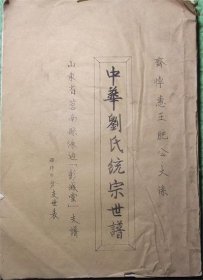 齊悼惠王肥公大系
中華劉氏統宗世譜
山東省莒南縣 「彭城堂」支譜
支世表